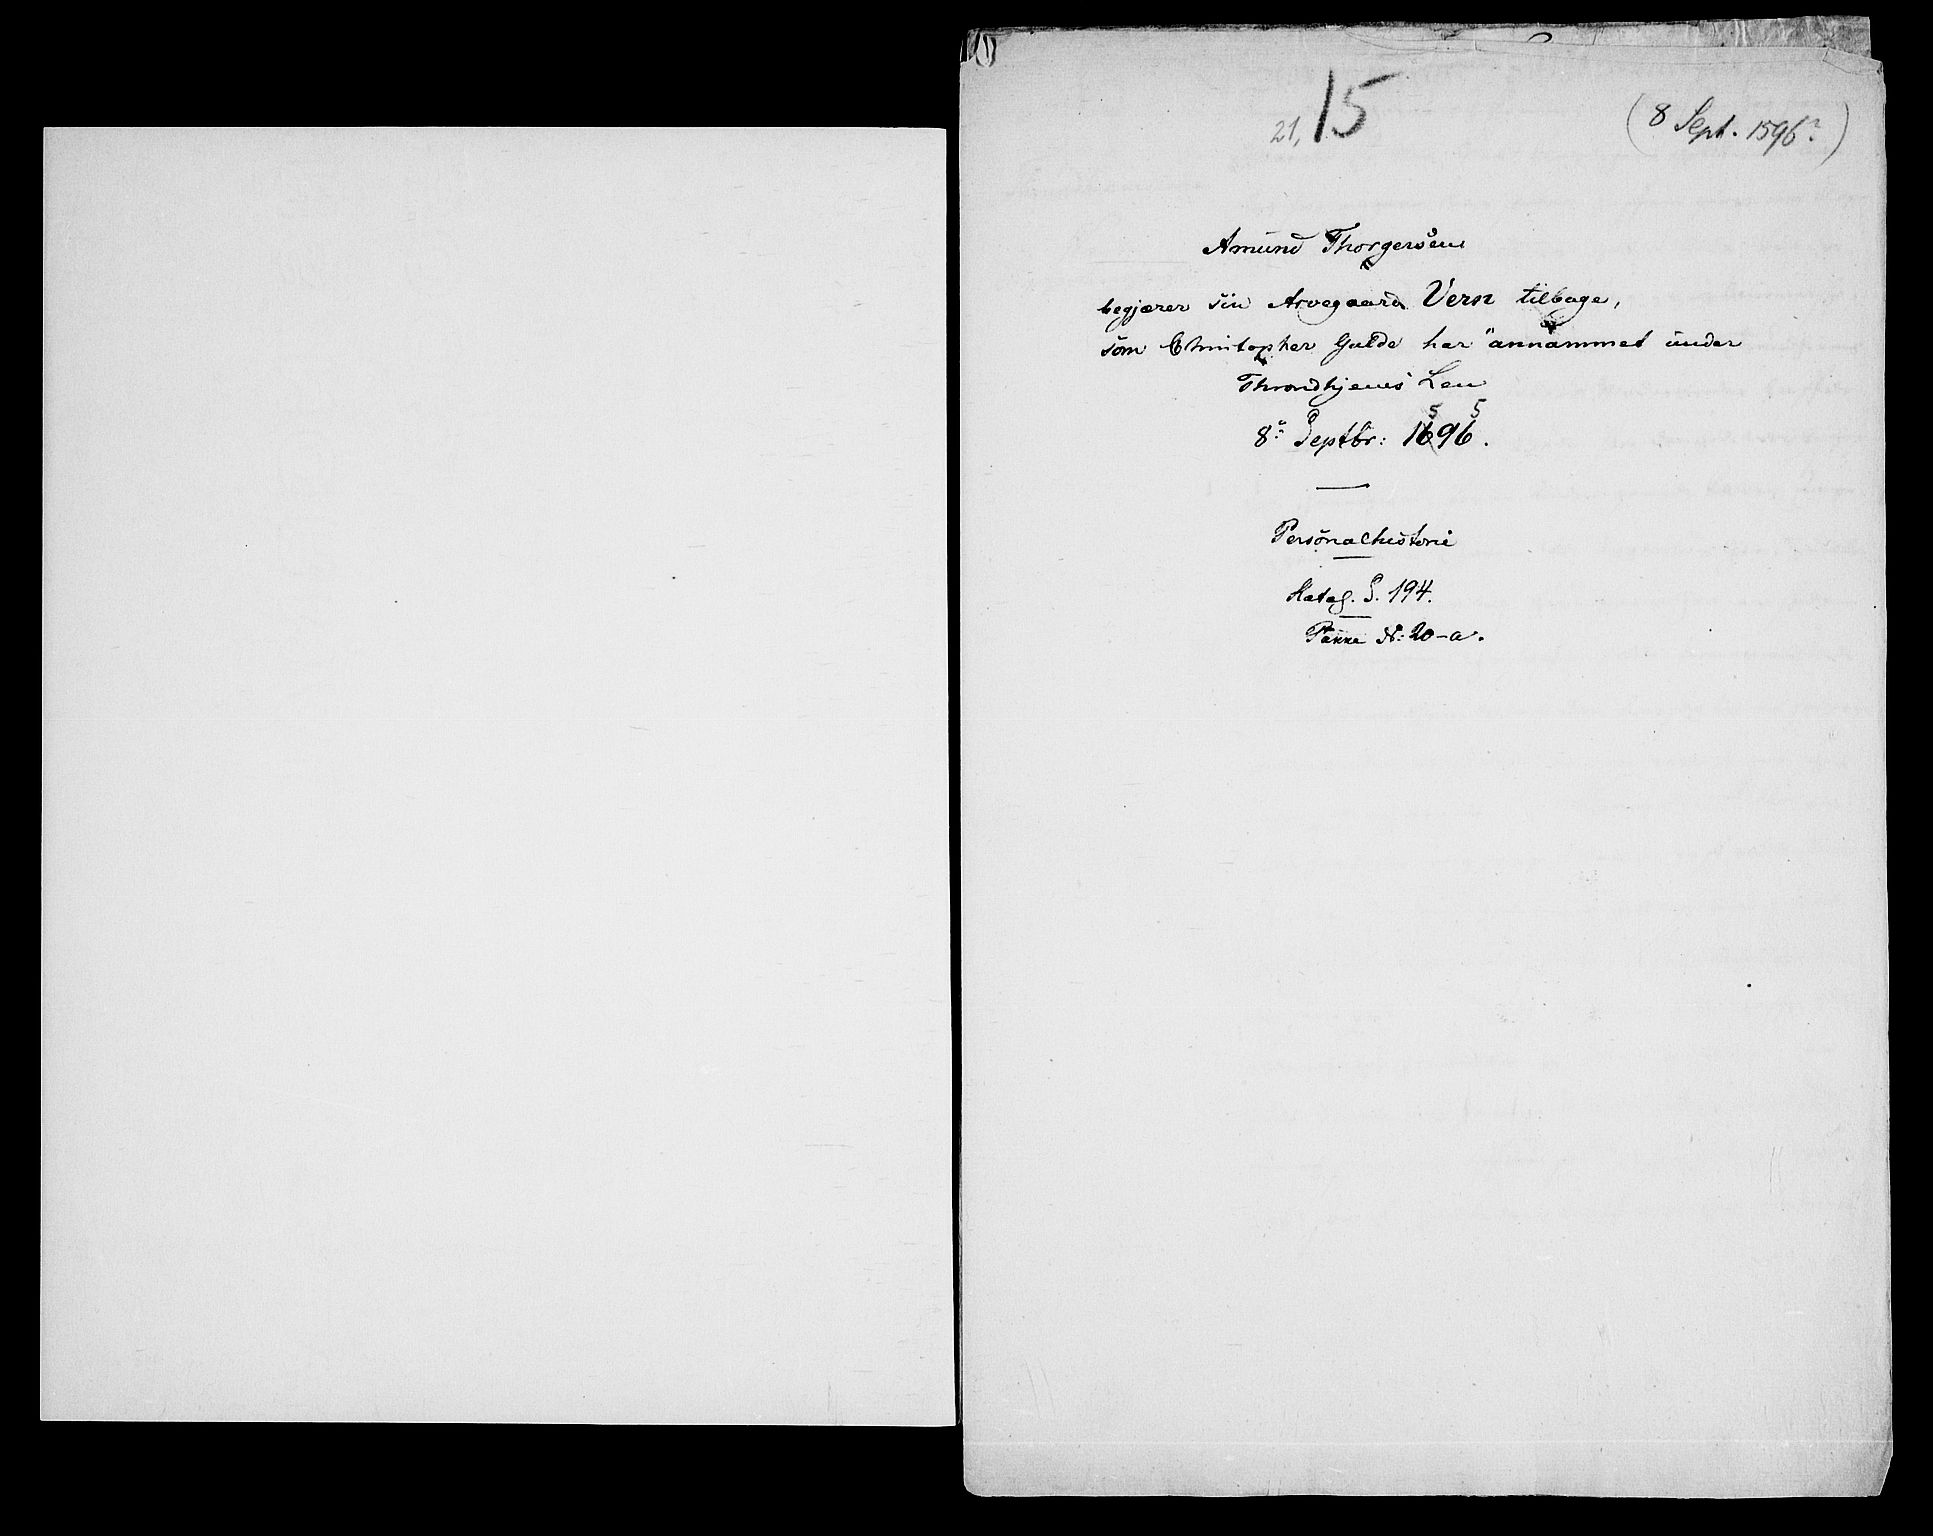 21, 15
(8 Sept. 1596?)
Amund Thorgersen
begjærer sin Arvegaard Vern tilbage,
som Christopher Galde har annammet under
Throndhjems Len
5 5
8de Septbr: 1696.
Personalhistorie
Katal. S. 194.
Pakke N: 20-a.